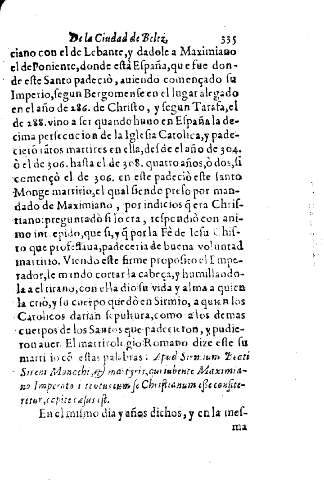 De la Ciudad de Belez, 335
ciano con el de Lebante, y dadole a Maximiano
el de Poniente, donde está España, que fue don-
de este Santo padeció, auiendo començado su
Imperio, segun Bergomense en el lugar alegado
en el año de 286. de Christo, y segun Tarafa, el
de 288. vino a ser quando huuo en España la de-
cima persecucion de la Iglesia Catolica, y pade-
cierō tātos martires en ella, desde el año de 304.
ò el de 306. hasta el de 308. quatro años, ò dos, si
començò el de 306. en este padeciò este santo
Monge martirio, el qual siendo preso por man-
dado de Maximiano, por indicios q̄ era Chris-
tiano: preguntado si lo era, respondiò con ani-
mo intrepido, que si, y q̄ por la Fè de Iesu Chris-
to que professaua, padeceria de buena voluntad
martirio. Viendo este firme proposito el Impe-
rador, le mandò cortar la cabeça, y humillando-
la a el tirano, con ella dio su vida y alma a quien
la criò, y su cuerpo quedò en Sirmio, a quien los
Catolicos darian sepultura, como a los demas
cuerpos de los Santos que padecieron, y pudie-
ron auer. El martirologio Romano dize este su
martirio cō estas palabras: Apud Sirmium
Sireni Monachi, & martyris, qui iubente Maximia-
no Imperato
retur, capite cæsus est.
En el mismo dia y años dichos, y en la mes-
ma